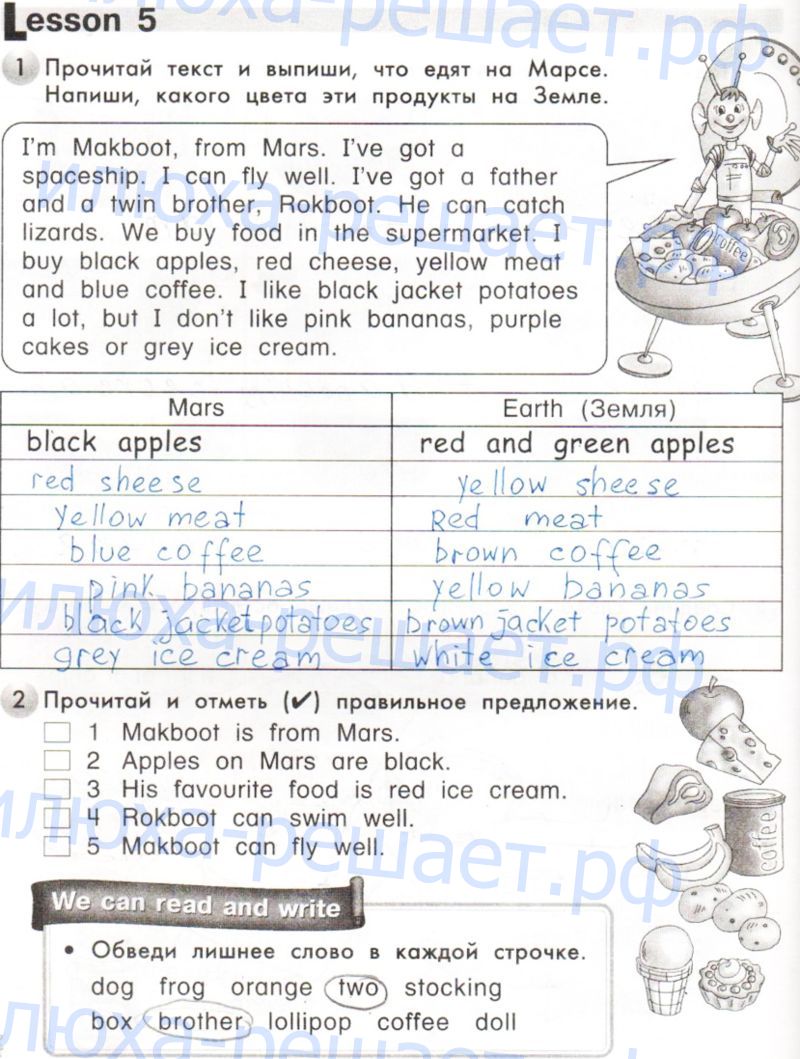 Lesson 5
1 Прочитай текст и выпиши, что едят на Марсе.
Напиши, какого цвета эти продукты на Земле.
I'm Makboot, from Mars. I've got a
spaceship. I can fly well. I've got a father
and a twin brother, Rokboot. He can catch
lizards. We buy food in the supermarket. I
buy black apples, red cheese, yellow meat
and blue coffee. I like black jacket potatoes
a lot, but I don't like pink bananas, purple
cakes or grey ice cream.
coffee
Mars Earth (Земля)
black apples red and green apples
red sheese yellow sheese
yellow meat Red meat
blue coffee brown coffee
pink bananas yellow bananas
black jacket potatoes brown jacket potatoes
grey ice cream white ice cream
2 Прочитай и отметь (✔) правильное предложение.
1 Makboot is from Mars.
2 Apples on Mars are black.
3 His favourite food is red ice cream.
4 Rokboot can swim well.
5 Makboot can fly well.
coffee
We can read and write
• Обведи лишнее слово в каждой строчке.
dog frog orange two stocking
box brother lollipop coffee doll
илюха-решает.рф
илюха-решает.рф
илюха-решает.рф
илюха-решает.рф
илюха-решает.рф